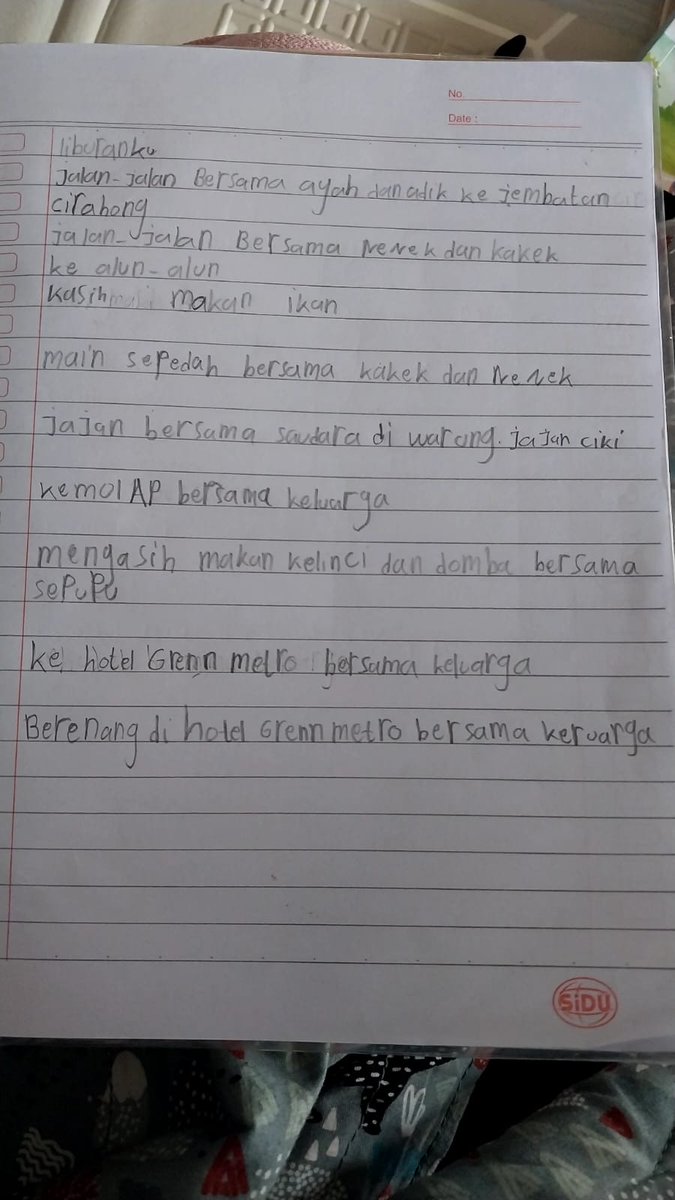 No
Date :
liburanku
Jalan-Jalan Bersama ayah dan adik ke jembatan
cirahong
jalan-jalan Bersama Nenek dan kakek
ke alun-alun
kasih makan ikan
main sepedah bersama kakek dan Nenek
jajan bersama saudara di warung. jajan ciki
kemol AP bersama keluarga
mengasih makan kelinci dan domba bersama
sepupu
ke hotel Grenn metro bersama keluarga
Berenang di hotel Grenn metro bersama keruarga
SiDU